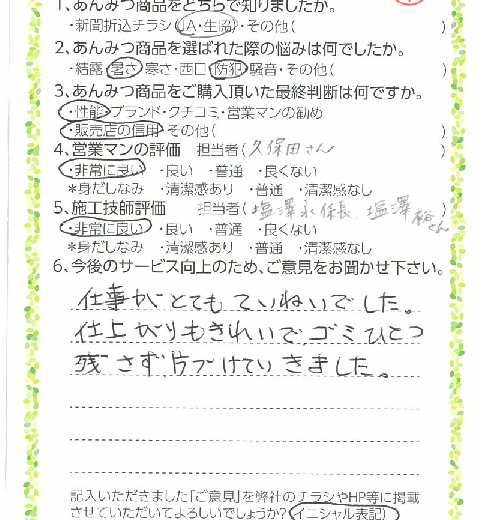 1、あんみつ商品をどちらで知りましたか。
・新聞折込チラシ・JA・生協・その他( )
2、あんみつ商品を選ばれた際の悩みは何でしたか。
・結露・暑さ・寒さ・西日・防犯・騒音・その他( )
3、あんみつ商品をご購入頂いた最終判断は何ですか。
・性能・ブランド・クチコミ・営業マンの勧め
・販売店の信用・その他( )
4、営業マンの評価 担当者(久保田さん )
・非常に良い ・良い ・普通 ・良くない
*身だしなみ ・清潔感あり ・普通 ・清潔感なし
5、施工技師評価 担当者(塩澤永係長、塩澤裕さん)
・非常に良い ・良い ・普通 ・良くない
*身だしなみ ・清潔感あり ・普通 ・清潔感なし
6、今後のサービス向上のため、ご意見をお聞かせ下さい。
仕事がとてもていねいでした。
仕上がりもきれいで、ゴミひとつ
残さず、片づけていきました。
記入いただきました「ご意見」を弊社のチラシやHP等に掲載
させていただいてよろしいでしょうか?(イニシャル表記)